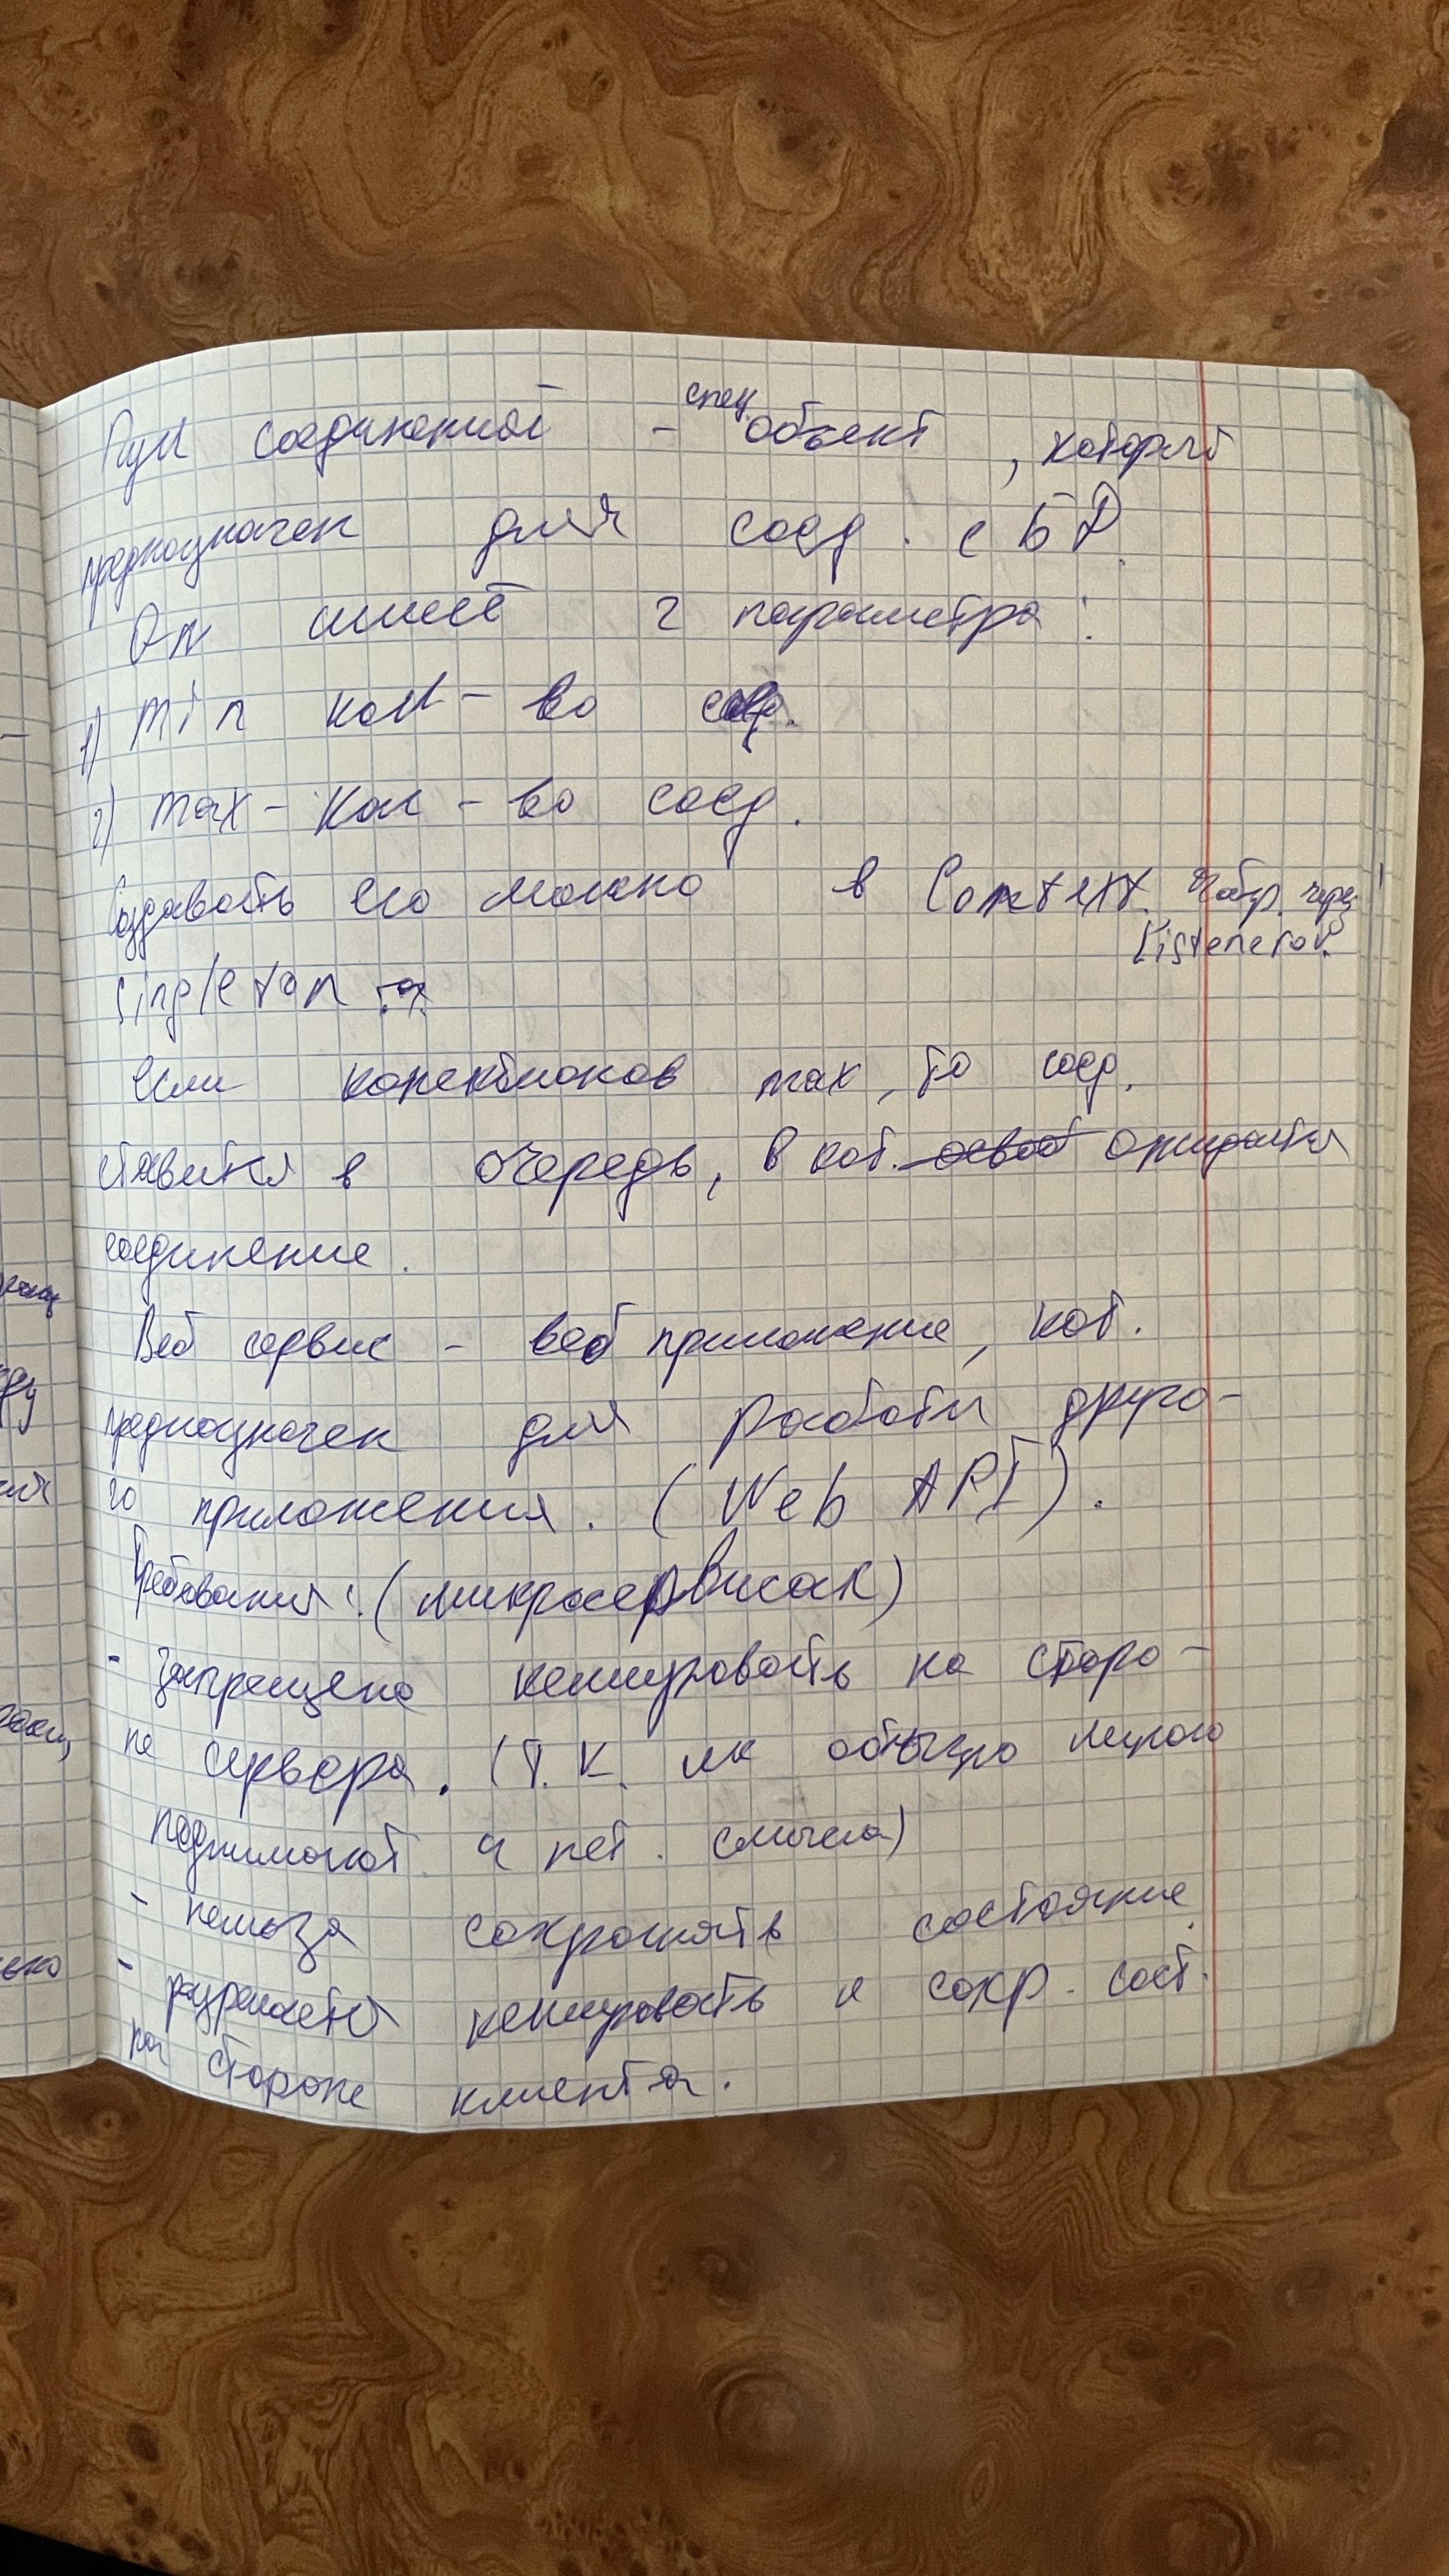 Пул соединений - спец. объект, который
предназначен для соед. с БД.
Он имеет 2 параметра:
1) min кол-во соед.
2) max - кол-во соед.
Создавать его можно в Context. через
Listenerов.
Singleton
если конектионов max, то соед.
ставится в очередь, в кот. освоб ожидается
соединение.
Веб сервис - веб приложение, кот.
предназначен для работы друго-
го приложения. (Web API).
Требования: (микросервисах)
- запрещено кешировать на сторо-
не сервера. (т.к. их обычно много
поднимают и нет смысла)
- нельзя сохранять состояние.
- разрешается кешировать и сохр. сост.
на стороне клиента.